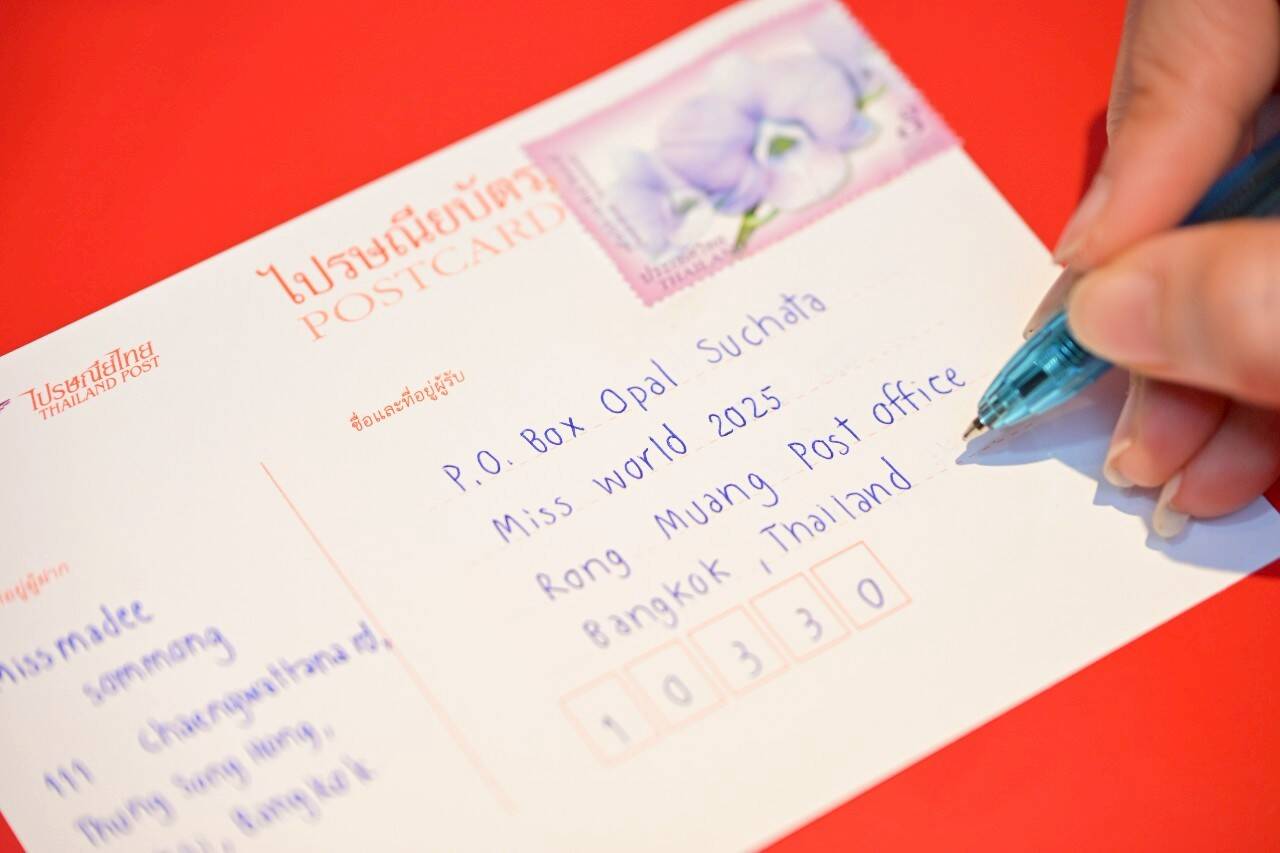 ไปรษณียบัตร
POSTCARD
ประเทศไทย
THAILAND
3
ไปรษณีย์ไทย
THAILAND POST
ชื่อและที่อยู่ผู้รับ
P.O. Box Opal Suchata
Miss world 2025
Rong Muang Post office
Bangkok , Thailand
10330
ที่อยู่ผู้ฝาก
Miss madee
sommong
111 Chaengwattana rd.
Thung Song Hong,
Bangkok